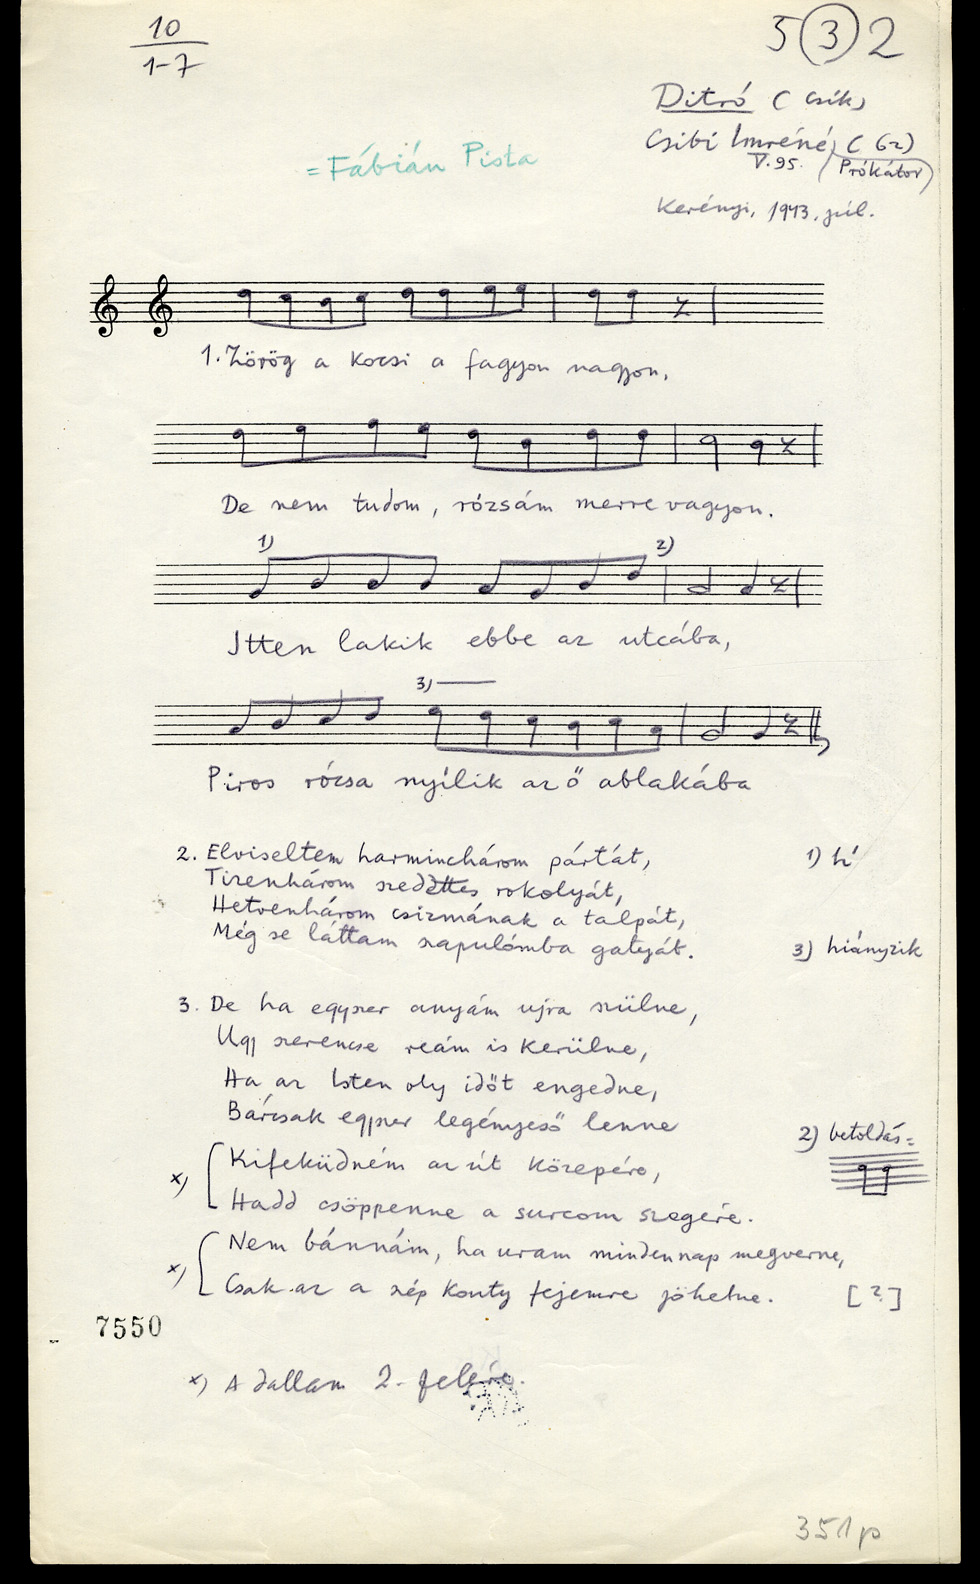 10
1-7
5 3 2
Ditró (Csík)
Csibi Imréné (62)
V. 95. (Prókátor)
Kerényi, 1943. júl.
= Fábián Pista
1. Zörög a kocsi a fagyon nagyon,
De nem tudom, rózsám merre vagyon.
1)
2)
Itten lakik ebbe az utcába,
3)
Piros rózsa nyílik az ő ablakába
2. Elviseltem harminchárom pártát,
Tizenhárom szedettes rokolyát,
Hetvenhárom csizmának a talpát,
Még se láttam szapulómba gatyát.
1) h'
3) hiányzik
3. De ha egyszer anyám ujra szülne,
Ugy szerencse reám is kerülne,
Ha az Isten oly időt engedne,
Bárcsak egyszer legényeső lenne
2) betoldás =
x) Kifeküdném az út közepére,
Hadd csöppenne a surcom szegére.
x) Nem bánnám, ha uram mindennap megverne,
Csak az a szép konty fejemre jöhetne. [?]
7550
x) A dallam 2. felére.
351p